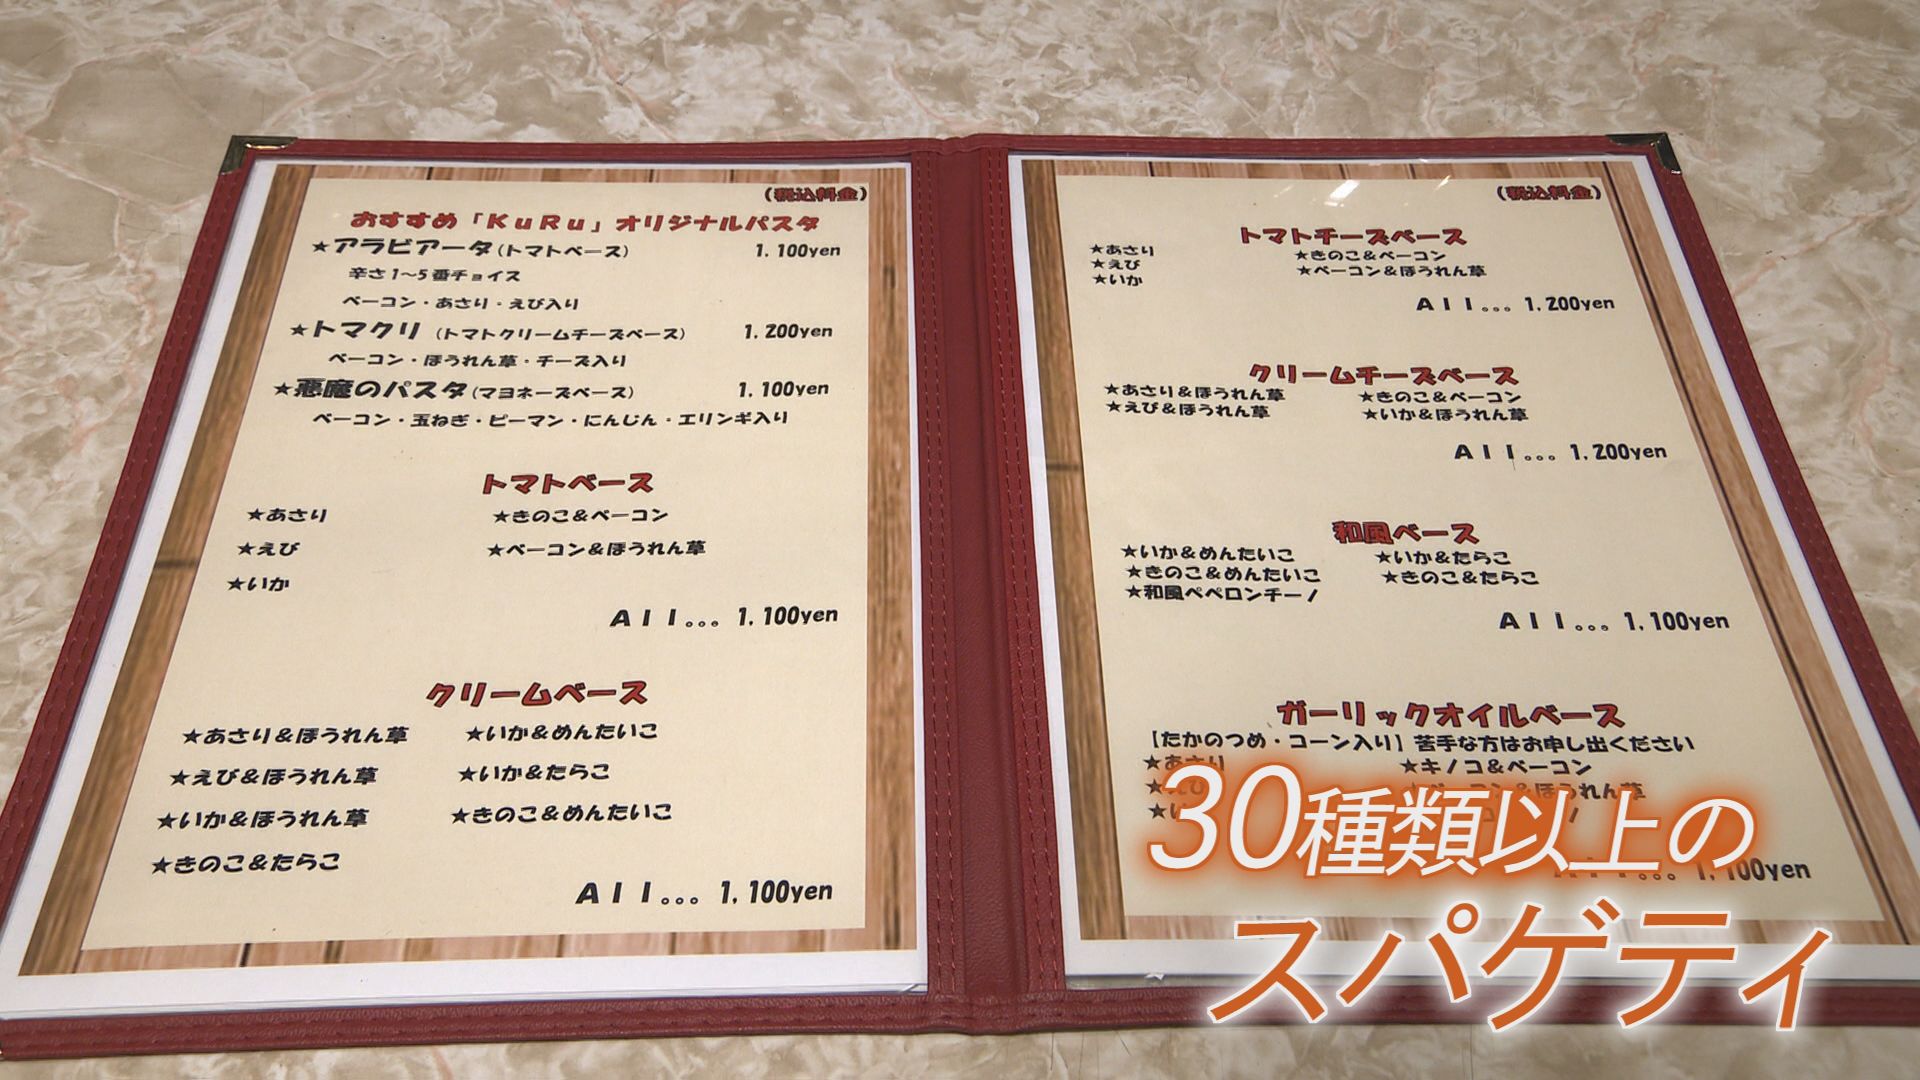 (税込料金)
おすすめ「KuRu」オリジナルパスタ
★アラビアータ(トマトベース) 1,100yen
辛さ1~5番チョイス
ベーコン・あさり・えび入り
★トマクリ (トマトクリームチーズベース) 1,200yen
ベーコン・ほうれん草・チーズ入り
★悪魔のパスタ(マヨネーズベース) 1,100yen
ベーコン・玉ねぎ・ピーマン・にんじん・エリンギ入り
トマトベース
★あさり ★きのこ&ベーコン
★えび ★ベーコン&ほうれん草
★いか
All。。。 1,100yen
クリームベース
★あさり&ほうれん草 ★いか&めんたいこ
★えび&ほうれん草 ★いか&たらこ
★いか&ほうれん草 ★きのこ&めんたいこ
★きのこ&たらこ
All。。。 1,100yen
(税込料金)
トマトチーズベース
★あさり ★きのこ&ベーコン
★えび ★ベーコン&ほうれん草
★いか
All。。。 1,200yen
クリームチーズベース
★あさり&ほうれん草 ★きのこ&ベーコン
★えび&ほうれん草 ★いか&ほうれん草
All。。。 1,200yen
和風ベース
★いか&めんたいこ ★いか&たらこ
★きのこ&めんたいこ ★きのこ&たらこ
★和風ペペロンチーノ
All。。。 1,100yen
ガーリックオイルベース
【たかのつめ・コーン入り】苦手な方はお申し出ください
★あさり ★キノコ&ベーコン
&ほうれん草
1,100yen
30種類以上の
スパゲティ